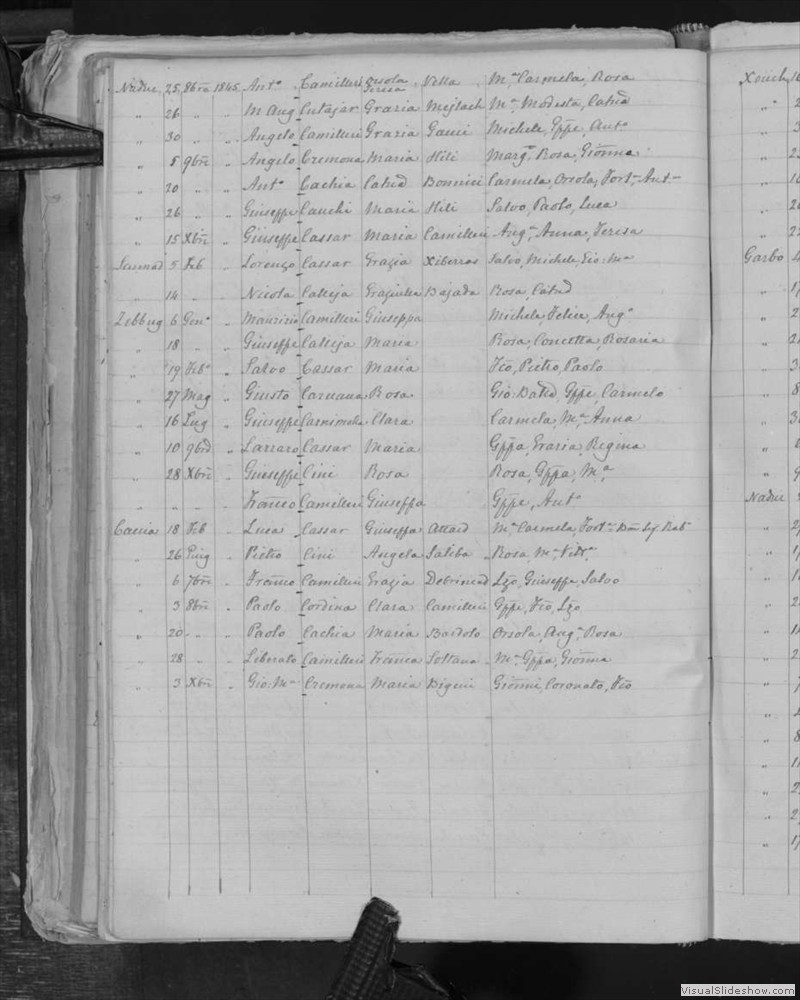 Nadur 25 8bre 1845 Ant° Camilleri Orsola Teresa Vella Mª Carmela, Rosa
„ 26 „ „ M Aug Cutajar Grazia Mejlach Mª Modesta, Catnd
„ 30 „ „ Angelo Camilleri Grazia Gauci Michele, Gppe, Ant°
„ 5 9bre „ Angelo Cremona Maria Hili Margª Rosa, Gionna
„ 20 „ „ Ant° Cachia Catnd Bonnici Carmela, Orsola, Fortª Ant
„ 26 „ „ Giuseppe Cauchi Maria Hili Salvo, Paolo, Luca
„ 15 Xbre „ Giuseppe Cassar Maria Camilleri Augª Anna, Teresa
5 Feb „ Lorenzo Cassar Grazia Xiberras Salvo, Michele, Gio: Mª
„ 14 „ „ Nicola Calleja Graziulla Bajada Rosa, Catnd
Zebbug 6 Gen° „ Maurizio Camilleri Giuseppa Michele, Felice, Augª
„ 18 „ „ Giuseppe Calleja Maria Rosa, Concetta, Rosaria
„ 19 Feb° „ Salvo Cassar Maria Fco, Pietro, Paolo
„ 27 Mag „ Giusto Caruana Rosa Gio: Batta, Gppe, Carmelo
„ 16 Lug „ Giuseppe Clara Carmela, Mª Anna
„ 10 9bre „ Lazzaro Cassar Maria Gppa, Grazia, Regina
„ 28 Xbre „ Giuseppe Cini Rosa Rosa, Gppa, Mª
„ „ „ Franco Camilleri Giuseppa Gppe, Ant°
Caccia 18 Feb „ Luca Cassar Giuseppa Attard Mª Carmela, Fortª
„ 26 „ Pietro Cini Angela Saliba Rosa, Mª Vittª
„ 6 7bre „ Franco Camilleri Grazia Debrincad Lzo, Giuseppe, Salvo
„ 3 8bre „ Paolo Cordina Clara Camilleri Gppe, Fco, Lzo
„ 20 „ „ Paolo Cachia Maria Bardolo Orsola, Augª Rosa
28 „ „ Liberato Camilleri Franca Soltana Mª Gppa, Gionna
„ 3 Xbre „ Gio: Mª Cremona Maria Bigeni Gionni, Coronato, Fco
Xeuch
Garbo
Nadur
VisualSlideshow.com